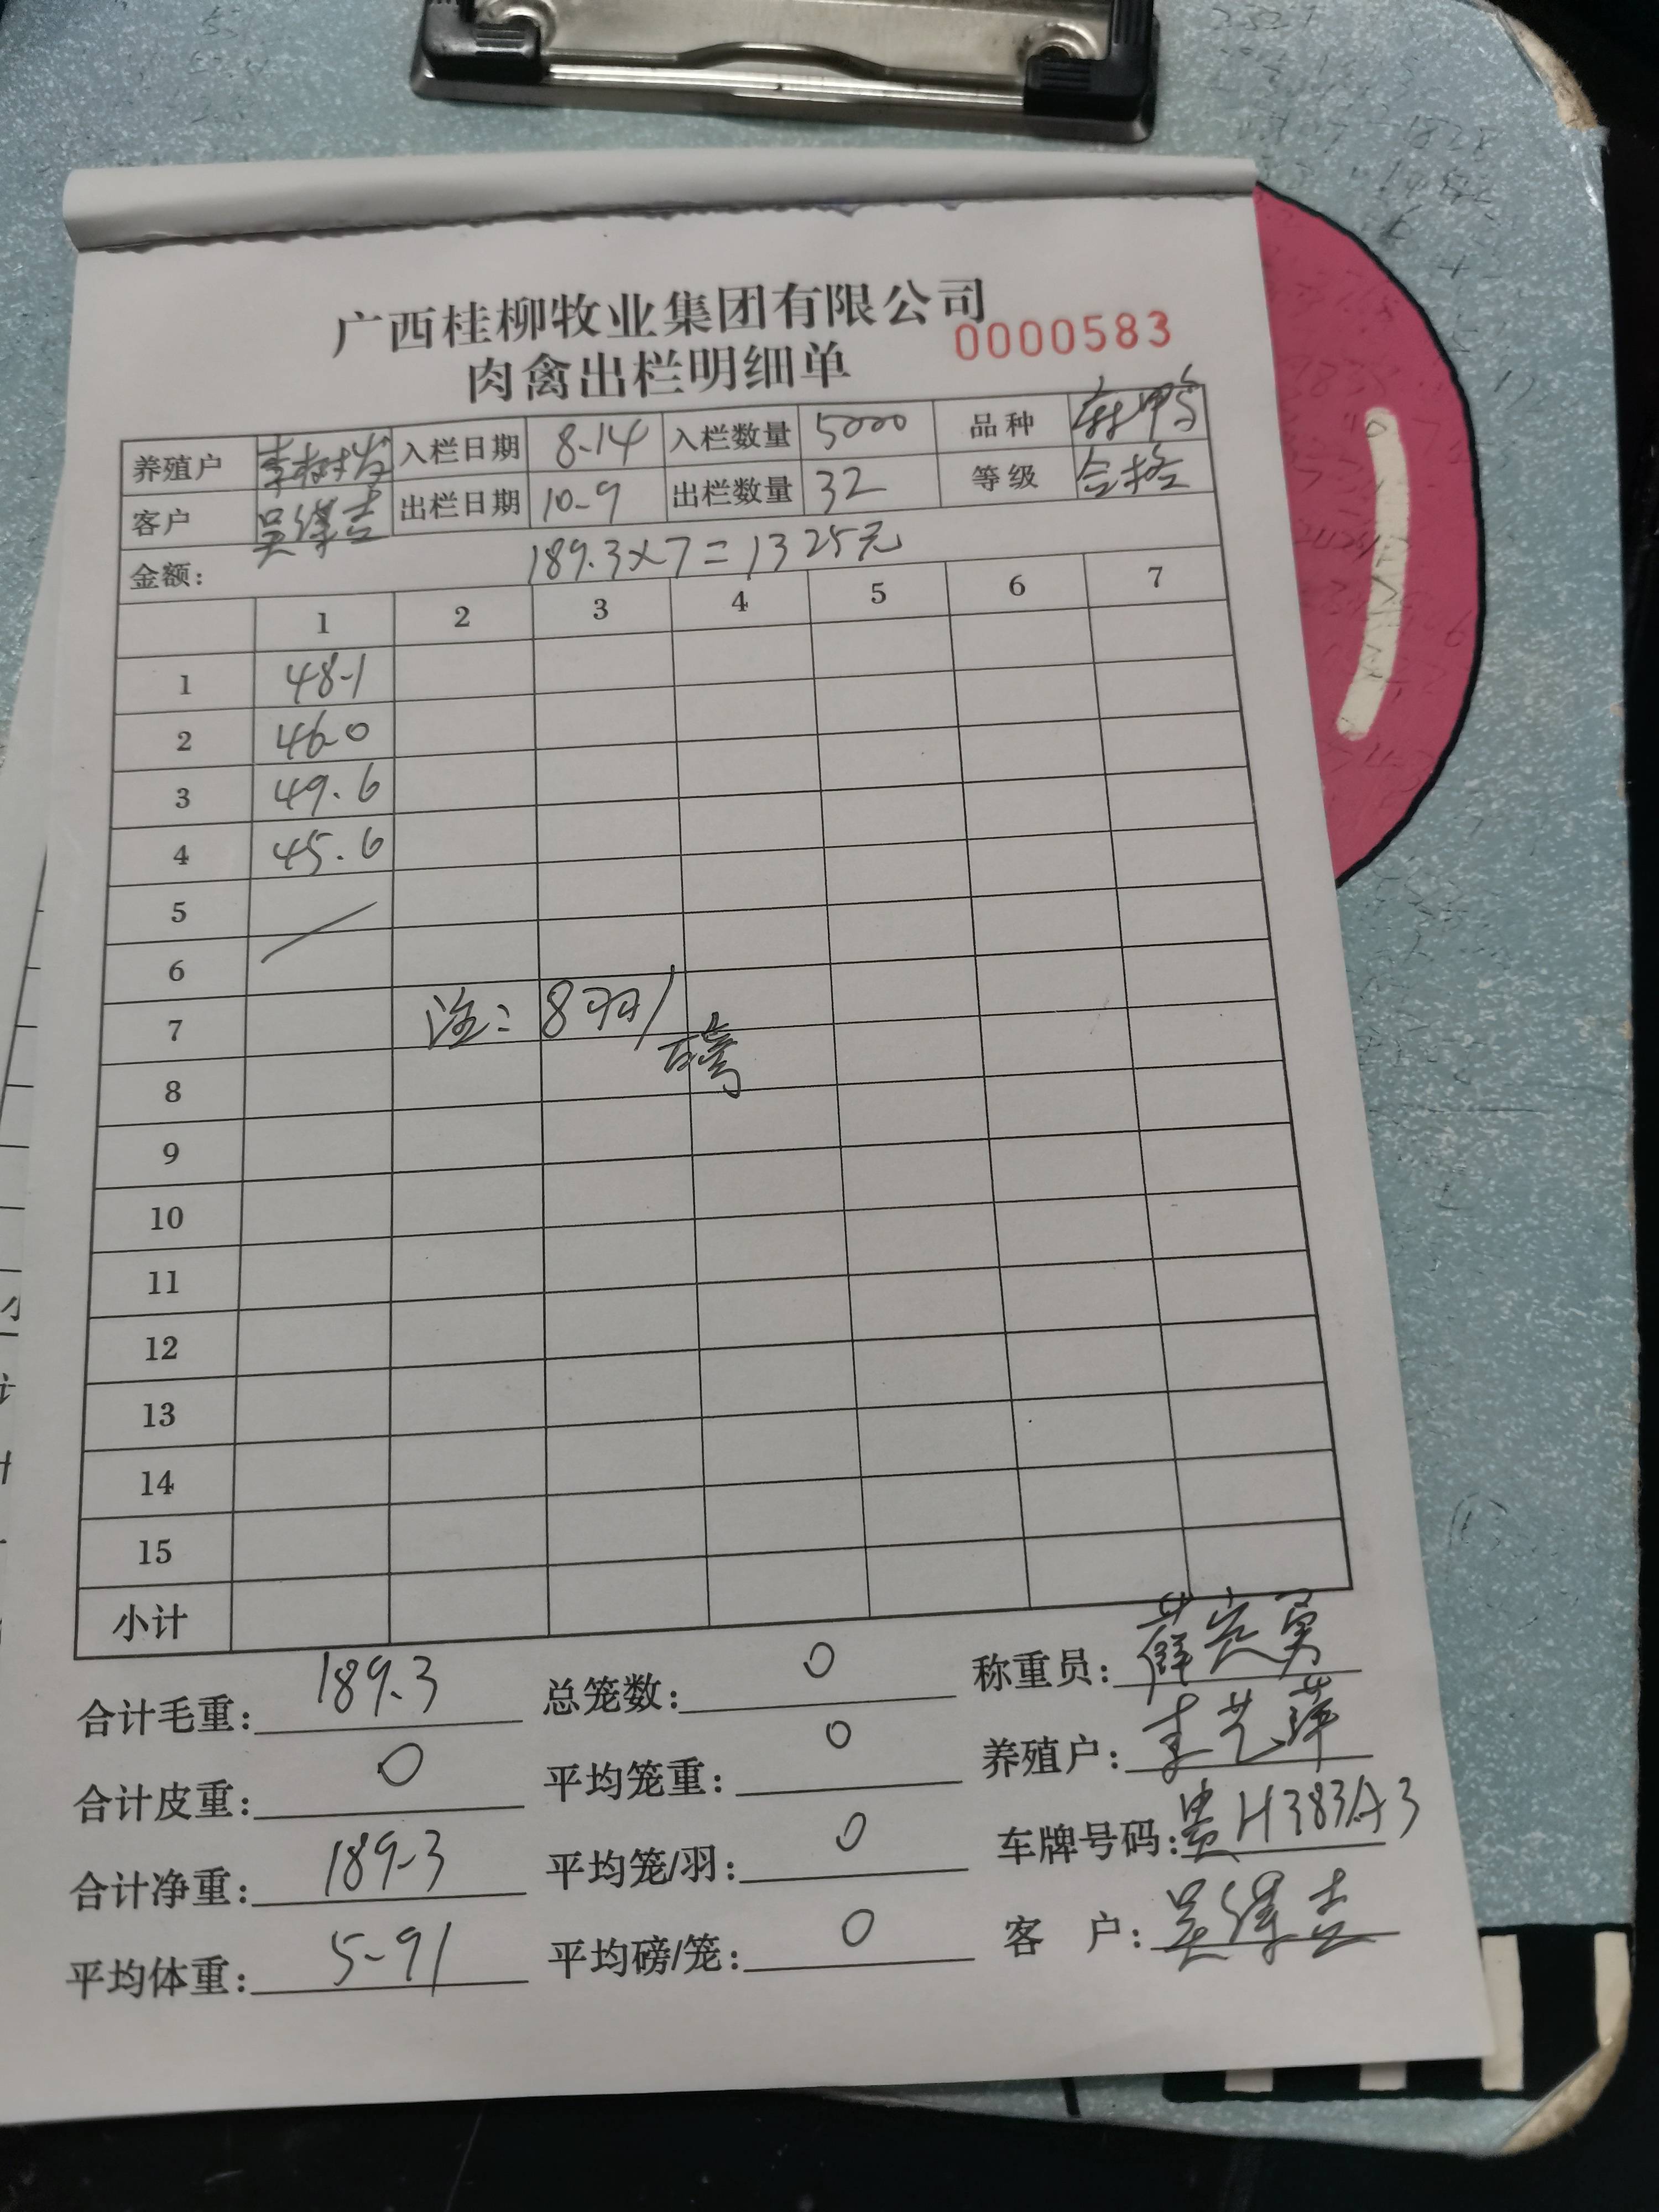 广西桂柳牧业集团有限公司
肉禽出栏明细单 0000583
养殖户 李树发 入栏日期 8-14 入栏数量 5000 品种 麻鸭
客户 吴泽吉 出栏日期 10-9 出栏数量 32 等级 合格
金额: 189.3×7=1325元
1 2 3 4 5 6 7
1 48.1
2 46.0
3 49.6
4 45.6
5
6
7 注: 8羽/
8 磅
9
10
11
12
13
14
15
小计
合计毛重: 189.3 总笼数: 0 称重员:
合计皮重: 0 平均笼重: 0 养殖户: 李艺萍
合计净重: 189.3 平均笼/羽: 0 车牌号码: 贵H383A3
平均体重: 5.91 平均磅/笼: 0 客户: 吴泽吉